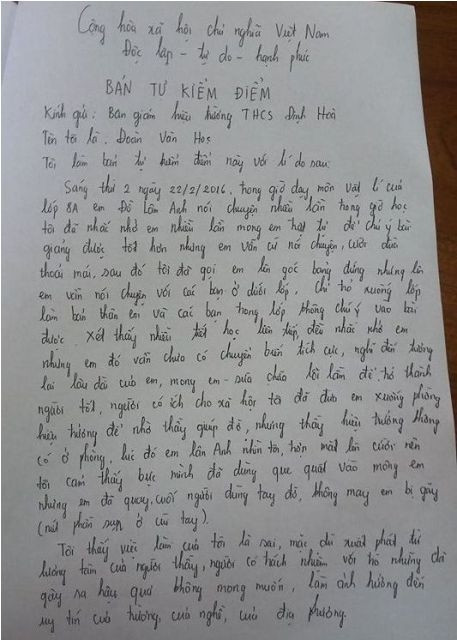 Cộng hòa xã hội chủ nghĩa Việt Nam
Độc lập - tự do - hạnh phúc
BẢN TỰ KIỂM ĐIỂM
Kính gửi: Ban giám hiệu trường THCS Định Hoà
Tên tôi là: Đoàn Văn Học
Tôi làm bản tự kiểm điểm này với lí do sau:
Sáng thứ 2 ngày 22/2/2016, trong giờ dạy môn vật lí của
lớp 8A em Đỗ Lâm Anh nói chuyện nhiều lần trong giờ học
tôi đã nhắc nhở em nhiều lần mong em trật tự để chú ý bài
giảng được tốt hơn nhưng em vẫn cứ nói chuyện, cười đùa
thoải mái, sau đó tôi đã gọi em lên góc bảng đứng nhưng lên
em vẫn nói chuyện với các bạn ở dưới lớp, chỉ trỏ xuống lớp
làm bản thân em và các bạn trong lớp không chú ý vào bài
được. Xét thấy nhiều tiết học liên tiếp đều nhắc nhở em
nhưng em đó vẫn chưa có chuyển biến tích cực, nghĩ đến tương
lai lâu dài của em, mong em sửa chữa lỗi lầm để trở thành
người tốt, người có ích cho xã hội tôi đã đưa em xuống phòng
hiệu trưởng để nhờ thầy giúp đỡ, nhưng thầy hiệu trưởng không
có ở phòng, lúc đó em Lâm Anh nhìn tôi, mặt lại cười nên
tôi cảm thấy bực mình đã dùng que quất vào mông em
nhưng em đã quay, cuối người dùng tay đỡ, không may em bị gãy
(nứt phần sụn ở cùi tay).
Tôi thấy việc làm của tôi là sai, mặc dù xuất phát từ
lương tâm của người thầy, người có trách nhiệm với trò nhưng đã
gây ra hậu quả không mong muốn, làm ảnh hưởng đến
uy tín của trường, của nghề, của địa phương.